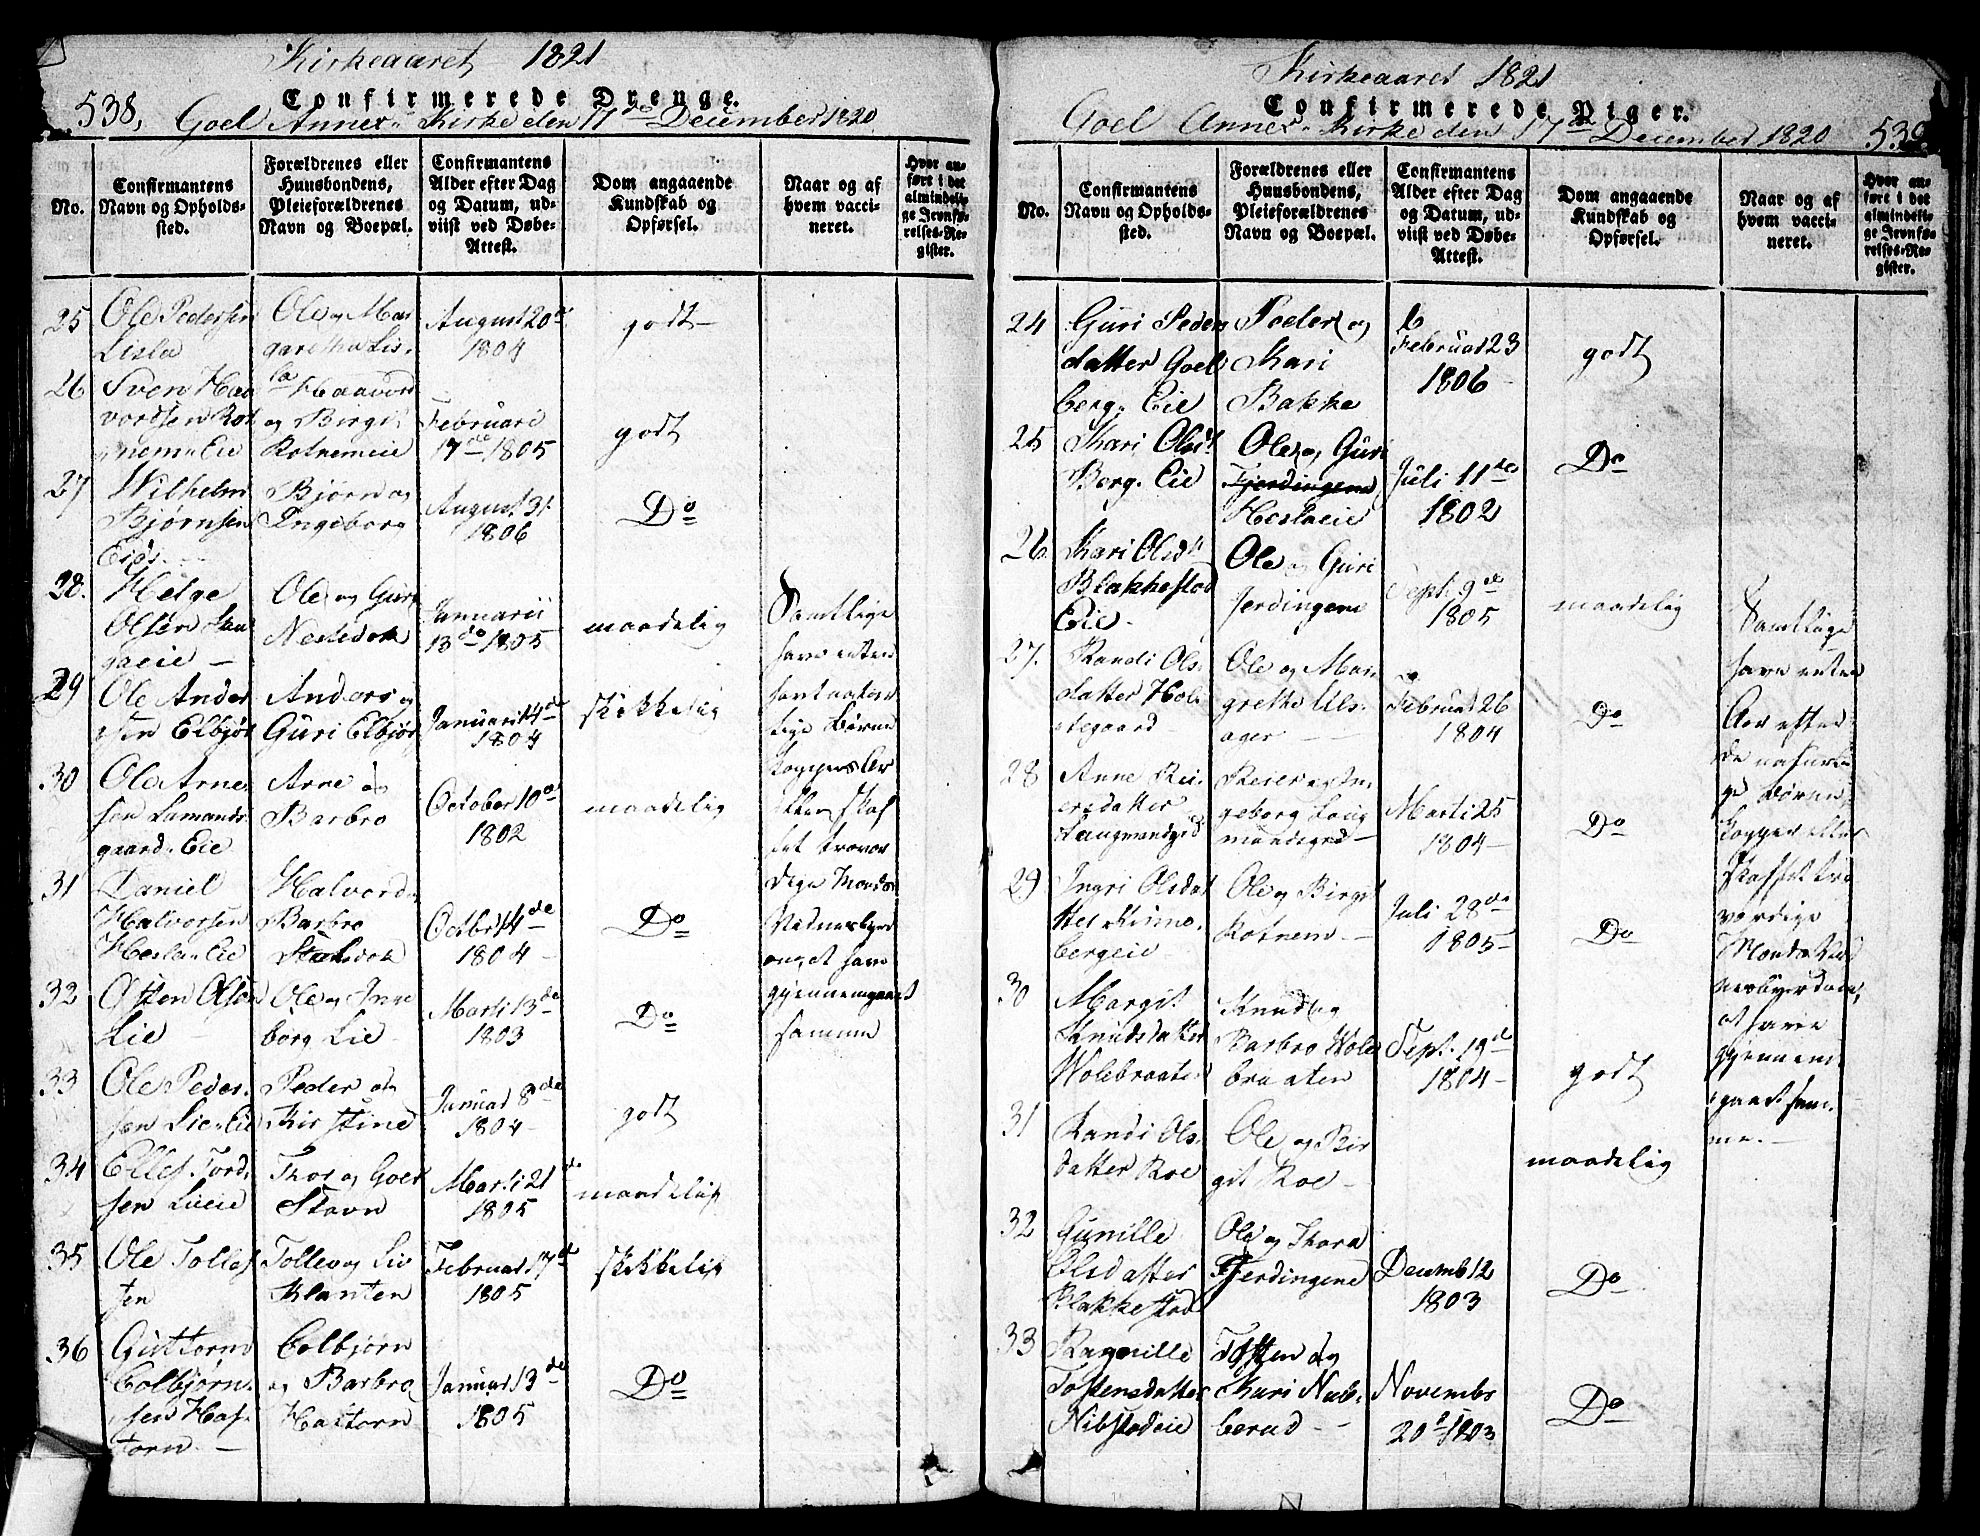 Kirkeaaret 1821
Confirmerede Drenge.
538, Goel Annex-Kirke den 17de December 1820
No.
Confirmantens
Navn og Opholds-
sted.
Forældrenes eller
Huusbondens,
Pleieforældrenes
Navn og Boepæl.
Confirmantens
Alder efter Dag
og Datum, ud-
viist ved Døbe-
Attest.
Dom angaaende
Kundskab og
Opførsel.
Naar og af
hvem vacci-
neret.
Hvor an-
ført i det
almindeli-
ge Jevnfø-
relses-Re-
gister.
25
Ole Pedersen
Lisla
Ole og Mar
garetha Lis-
la
August 20de
1804
godt
26
Sven Haa
vordsen Rot
nem Eie
Haavor
og Birgit
Rotnemeie
Februari
17de 1805
godt
27
Wilhelm
Bjørnsen
Eids
Bjørn og
Ingeborg
August 31
1806
Do
28.
Helge
Olsen
gaeie
Ole og Guri
Nestedok
Januarii
13de 1805
maadelig
Samtlige
have enten
29
Ole Ander
sen Elbjør
Anders og
Guri Elbjør
Januari 14de
1804
skikkelig
lige Børne
kopper
30
Ole Arne
sen Lamands
gaard Eie
Arne og
Barbro
October 10de
1802
maadelig
det trovær
31
Daniel
Halvorsen
Hesla Eie
Halvord
Barbro
Octbr 14de
1804
Do
dige Mænds
Vidnesbyrd
at have
32
Østen Olsen
Lie
Ole og Inge
borg Lie
Marti 13de
1803
Do
gjennemgaaet
samme
33
Ole Peder-
sen Lie Eie
Peder og
Kirstine
Januar 8de
1804
godt
34
Ellef Tord
sen Lieeie
Thor og Goer
Stavn
Marti 21de
1805
maadelig
35
Ole Tollef
sen
Tollev og Liv
Klanten
Februar 17de
1805
skikkelig
36
Guttorm
Colbjørn-
sen Has-
torn
Colbjørn
og Barbro
Hastorn
Januar 13de
1805
Do
Kirkeaaret 1821
Confirmerede Piger.
Goel Annex-Kirke den 17de December 1820 539
No.
Confirmantens
Navn og Opholds-
sted.
Forældrenes eller
Huusbondens,
Pleieforældrenes
Navn og Boepæl.
Confirmantens
Alder efter Dag
og Datum, ud-
viist ved Døbe-
Attest.
Dom angaaende
Kundskab og
Opførsel.
Naar og af
hvem vacci-
neret.
Hvor an-
ført i det
almindeli-
ge Jevnfø-
relses-Re-
gister.
24
Guri Peders
datter Goel
berg. Eie
Peder og
Kari
Bakke
Februar 23
1806
godt
25
Kari Olsd
Berg. Eie
Ole og Guri
Fjerdingene
Heslaeie
Juli 11te
1802
Do
26
Kari Olsd
Blakkestad
Eie
Ole og Guri
Jerdingene
Sept. 9de
1805
maadelig
27.
Randi Ols-
datter Hol-
stegaard
Ole og Mar
grethe Uls-
ager
Februar 26
1804
Do
Samtlige
have enten
28
Anne Rei
ersdatter
Laugmandsgrd
Reier og In
geborg Laug
mandsgrd
Marti 25
1804
Do
de naturli
ge Børne
kopper eller
29
Ingri Olsdat
ter Kinne-
bergeie
Ole og Birgit
Rotnem
Juli 28de
1805
Do
skaffet tro
værdige
Mænds Vid
nesbyrd om,
30
Margit
Knudsdatter
Wolebraaten
Knud og
Barbro Wole
braaten
Sept. 19de
1804
godt
at have
gjennem-
gaaet sam-
me.
31
Randi Ols-
datter Roe
Ole og Bir
git Roe
maadelig
32
Gunille
Olsdatter
Blakkestad
Ole og Thora
Fjerdingene
Decemb 12
1803
Do
33
Ragnille
Tostensdatter
Nibstadeie
Tosten og
Kari Nub-
berud
Novembr
20de 1803
Do